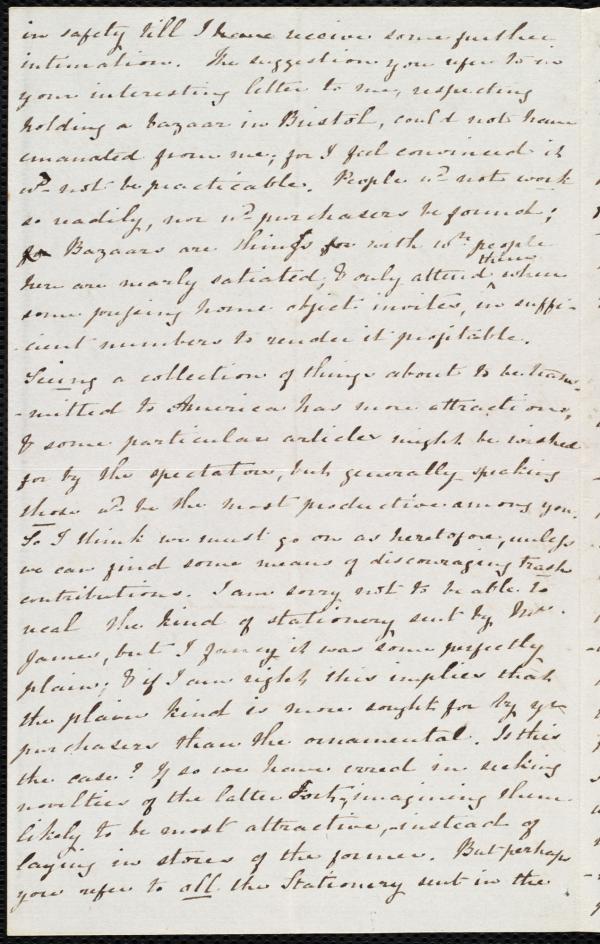 in safety till I have receive some further
intimation. The suggestion you refer to in
your interesting letter to me, respecting
holding a bazaar in Bristol, could not have
emanated from me; for I feel convinced it
wd. not be practicable. People wd. not work
so readily, nor wd. purchasers be found;
for Bazaars are things for with wch. people
here are nearly satiated, & only attend them when
some pressing home object invites, in suffi-
-cient numbers to render it profitable.
Seeing a collection of things about to be trans-
-mitted to America has more attractions,
& some particular articles might be wished
for by the spectators, but generally speaking
those wd. be the most productive among you.
So I think we must go on as heretofore, unless
we can find some means of discouraging trash
contributions. I am sorry not to be able to
the kind of stationery sent by Mrs.
James, but I fancy it was some perfectly
plain; & if I am right, this implies that
the plain kind is more sought for by yr
purchasers than the ornamental. Is this
the case? If so we have erred in seeking
novelties of the latter sort, imagining them
likely to be most attractive, instead of
laying in stores of the former. But perhaps
you refer to all the Stationery sent in the